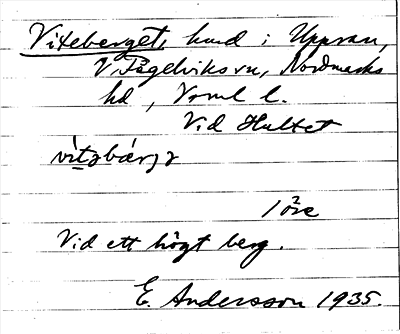 Viteberget, hmd i Uppsau,
V. Fågelviks sn, Nordmarks
hd, Vrml l.
Vid Hultet
1 öre
Vid ett högt berg.
E. Andersson 1935.